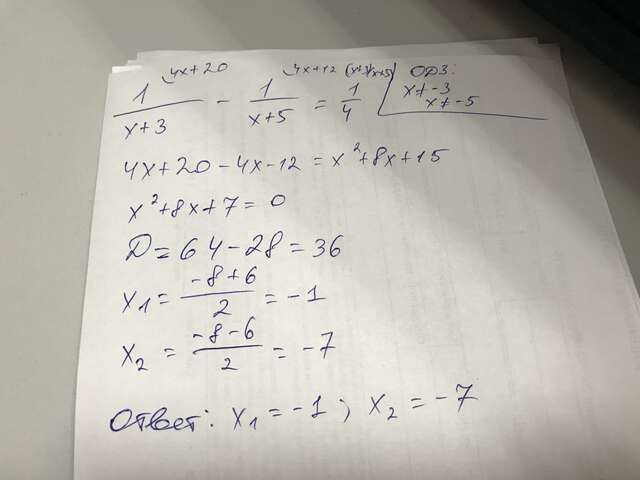 4x+20 4x+12 (x+3)(x+5) ОДЗ:
1/(x+3) - 1/(x+5) = 1/4 x≠-3
x≠-5
4x+20-4x-12=x²+8x+15
x²+8x+7=0
D=64-28=36
x₁=(-8+6)/2=-1
x₂=(-8-6)/2=-7
Ответ: x₁=-1; x₂=-7